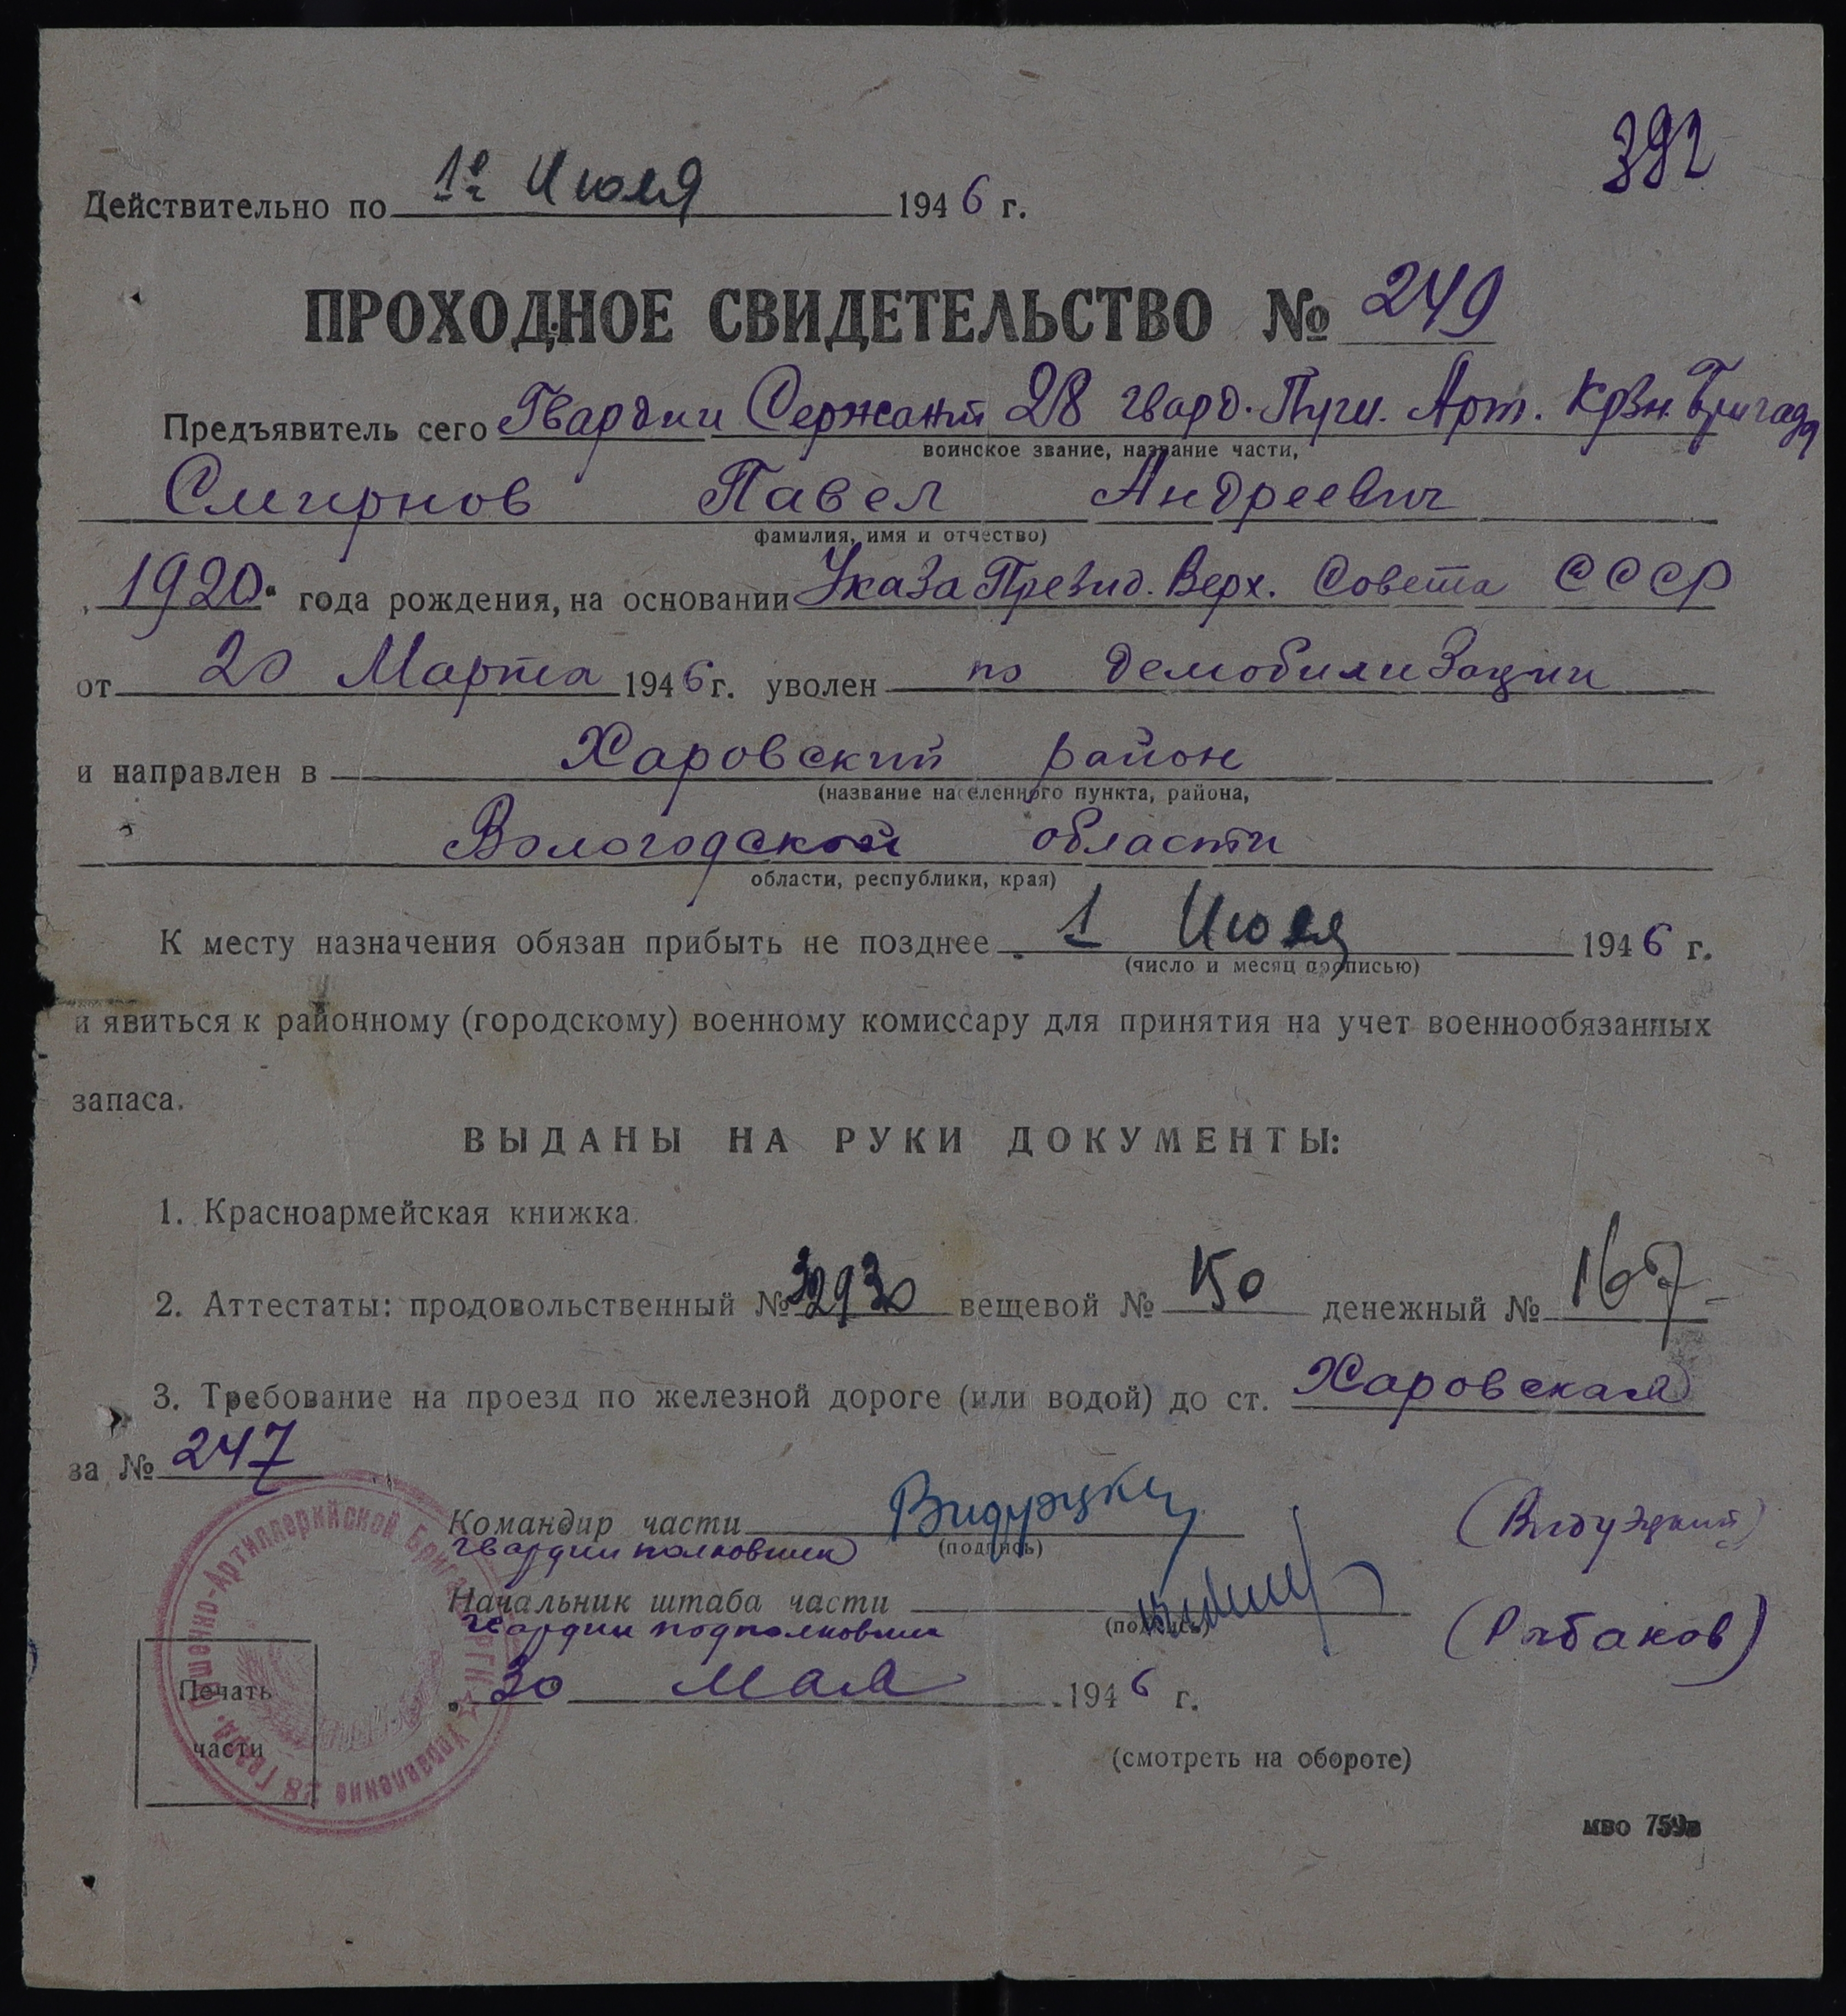 392
Действительно по 1е Июля 1946 г.
ПРОХОДНОЕ СВИДЕТЕЛЬСТВО № 249
Предъявитель сего Гвардии Сержант 28 гвард. Пуш. Арт. Крзн. Бригада
воинское звание, название части,
Смирнов Павел Андреевич
фамилия, имя и отчество)
„1920“ года рождения, на основании Указа Презид. Верх. Совета СССР
от 20 Марта 1946 г. уволен по демобилизации
и направлен в Харовский район
(название населенного пункта, района,
Вологодской области
области, республики, края)
К месту назначения обязан прибыть не позднее 1 Июля 1946 г.
(число и месяц прописью)
и явиться к районному (городскому) военному комиссару для принятия на учет военнообязанных
запаса.
ВЫДАНЫ НА РУКИ ДОКУМЕНТЫ:
1. Красноармейская книжка.
2. Аттестаты: продовольственный № 32930 вещевой № 150 денежный №
3. Требование на проезд по железной дороге (или водой) до ст. Харовская
за № 247
Командир части Видуэцкий (Видуэцкий)
гвардии полковник (подпись)
Начальник штаба части
гвардии подполковник (подпись) (Рыбаков)
„30 Мая 1946 г.
Печать
части
Управление 28 Гвард. Пушечно-Артиллерийской Бригады РГК
(смотреть на обороте)
мво 759в